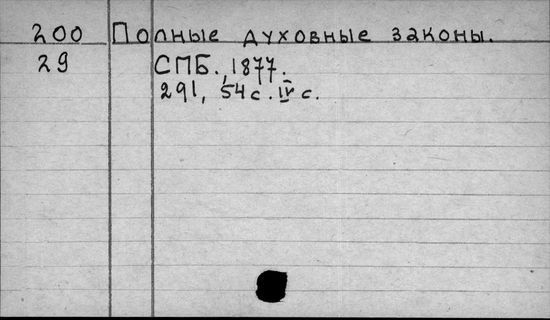 200 Полные духовные законы.
29 СПБ., 1877.
291, 54 с. IV с.